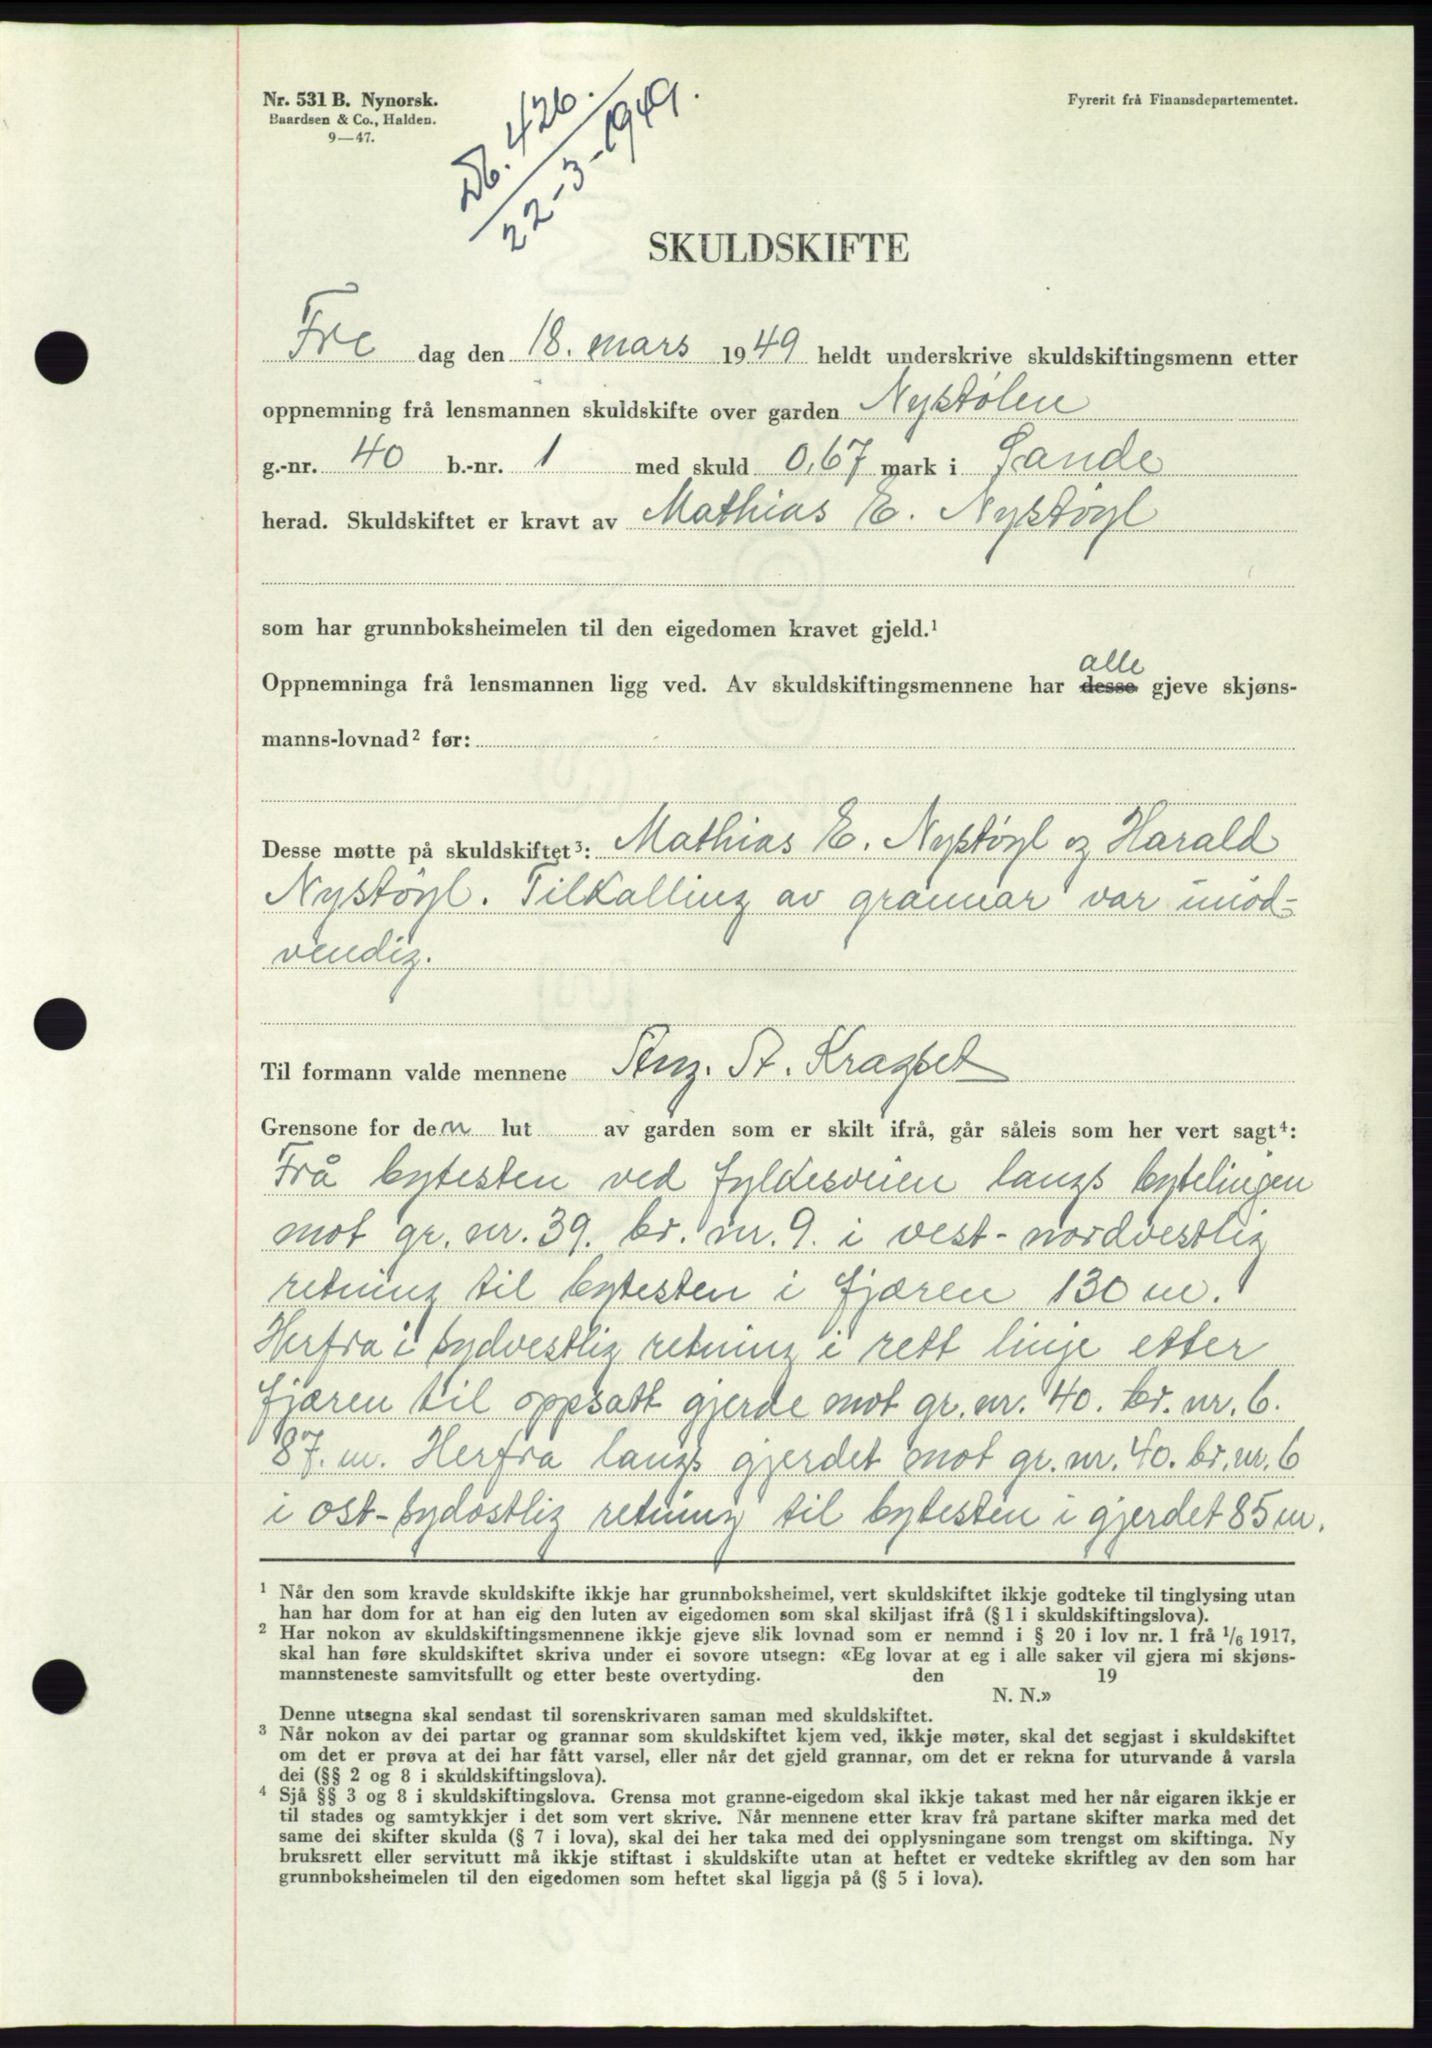 Nr. 531 B. Nynorsk.
Baardsen & Co., Halden.
9—47.
Db. 426.
22-3-1949.
Fyrerit frå Finansdepartementet.
SKULDSKIFTE
Fre dag den 18. mars 1949 heldt underskrive skuldskiftingsmenn etter
oppnemning frå lensmannen skuldskifte over garden Nystølen
g.-nr. 40 b.-nr. 1 med skuld 0,67 mark i Sande
herad. Skuldskiftet er kravt av Mathias E. Nystøyl
som har grunnboksheimelen til den eigedomen kravet gjeld.¹
alle
Oppnemninga frå lensmannen ligg ved. Av skuldskiftingsmennene har desse gjeve skjøns-
manns-lovnad² før:
Desse møtte på skuldskiftet³: Mathias E. Nystøyl og Harald
Nystøyl. Tilkalling av grannar var unød-
vendig.
Til formann valde mennene St. Kragset
Grensone for den lut av garden som er skilt ifrå, går såleis som her vert sagt⁴:
Frå bytesten ved fylkesveien langs bytelinjen
mot gr. nr. 39. br. nr. 9. i vest-nordvestlig
retning til bytesten i fjæren 130 m.
Herfra i sydvestlig retning i rett linje etter
fjæren til oppsatt gjerde mot gr. nr. 40. br. nr. 6.
87. m. Herfra langs gjerdet mot gr. nr. 40. br. nr. 6
i ost-sydostlig retning til bytesten i gjerdet 85 m.
¹ Når den som kravde skuldskifte ikkje har grunnboksheimel, vert skuldskiftet ikkje godteke til tinglysing utan
han har dom for at han eig den luten av eigedomen som skal skiljast ifrå (§ 1 i skuldskiftingslova).
² Har nokon av skuldskiftingsmennene ikkje gjeve slik lovnad som er nemnd i § 20 i lov nr. 1 frå 1/6 1917,
skal han føre skuldskiftet skriva under ei sovore utsegn: «Eg lovar at eg i alle saker vil gjera mi skjøns-
mannsteneste samvitsfullt og etter beste overtyding. den 19
N. N.»
Denne utsegna skal sendast til sorenskrivaren saman med skuldskiftet.
³ Når nokon av dei partar og grannar som skuldskiftet kjem ved, ikkje møter, skal det segjast i skuldskiftet
om det er prøva at dei har fått varsel, eller når det gjeld grannar, om det er rekna for uturvande å varsla
dei (§§ 2 og 8 i skuldskiftingslova).
⁴ Sjå §§ 3 og 8 i skuldskiftingslova. Grensa mot granne-eigedom skal ikkje takast med her når eigaren ikkje er
til stades og samtykkjer i det som vert skrive. Når mennene etter krav frå partane skifter marka med det
same dei skifter skulda (§ 7 i lova), skal dei her taka med dei opplysningane som trengst om skiftinga. Ny
bruksrett eller servitutt må ikkje stiftast i skuldskifte utan at heftet er vedteke skriftleg av den som har
grunnboksheimelen til den eigedomen som heftet skal liggja på (§ 5 i lova).